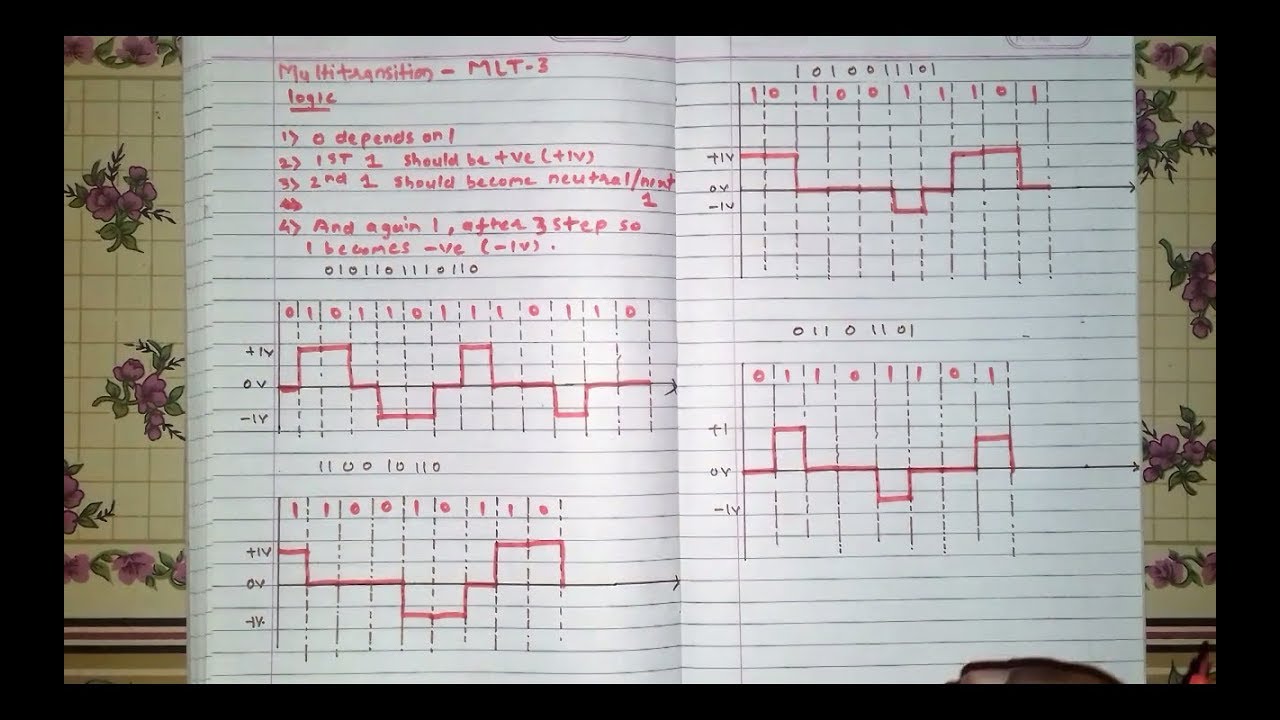 Multitransition - MLT-3
logic
1) 0 depends on 1
2) 1ST 1 should be +ve (+1V)
3) 2nd 1 should become neutral/next
1
4) And again 1, after 3 step so
1 becomes -ve (-1V).
0101101110110
0 1 0 1 1 0 1 1 1 0 1 1 0
+1V
0V
-1V
11 00 10 110
1 1 0 0 1 0 1 1 0
+1V
0V
-1V
1 0 1 0 0 1 1 1 0 1
1 0 1 0 0 1 1 1 0 1
+1V
0V
-1V
0 1 1 0 1 1 0 1
0 1 1 0 1 1 0 1
+1
0V
-1V